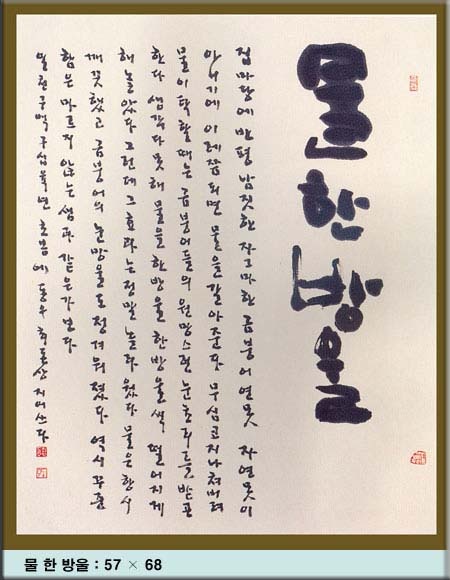 물 한 방울
집마당에 반평 남짓한 자그마한 금붕어 연못 자연못이
아니기에 이레쯤 되면 물을 갈아준다 무심코 지나쳐버려
물이 탁할 때는 금붕어들의 원망스런 눈초리를 받곤
한다 생각다 못해 물을 한방울 한방울씩 떨어지게
해 놓았다 그런데 그 효과는 정말 놀라웠다 물은 항시
깨끗했고 금붕어의 눈망울도 정겨워졌다 역시 꾸준
함은 마르지 않는 샘과 같은가보다
일천구백구십육년 초봄에 동우 최돈상 지어쓰다
물 한 방울 : 57 × 68